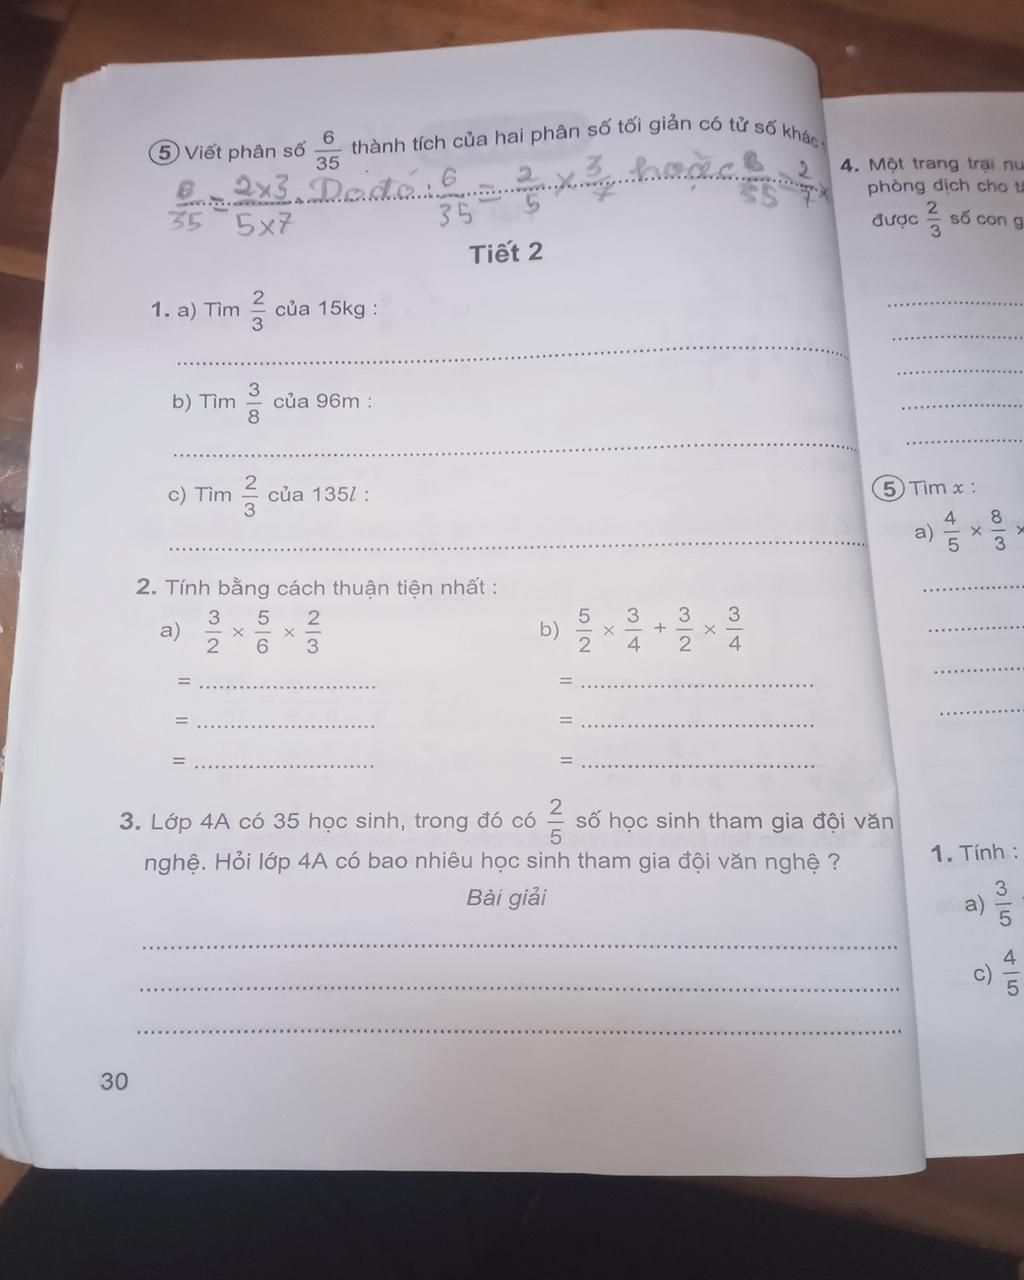 ⑤ Viết phân số 6/35 thành tích của hai phân số tối giản có tử số khác
6/35 = 2x3/5x7. Do đó: 6/35 = 2/5 x 3/7 hoặc 6/35 = 2/7 x
Tiết 2
1. a) Tìm 2/3 của 15kg :
b) Tìm 3/8 của 96m :
c) Tìm 2/3 của 135l :
2. Tính bằng cách thuận tiện nhất :
a) 3/2 × 5/6 × 2/3
b) 5/2 × 3/4 + 3/2 × 3/4
=
=
=
=
=
=
3. Lớp 4A có 35 học sinh, trong đó có 2/5 số học sinh tham gia đội văn
nghệ. Hỏi lớp 4A có bao nhiêu học sinh tham gia đội văn nghệ ?
Bài giải
30
4. Một trang trại
phòng dịch cho
được 2/3 số con
⑤ Tìm x :
a) 4/5 × 8/3
1. Tính :
a) 3/5
c) 4/5